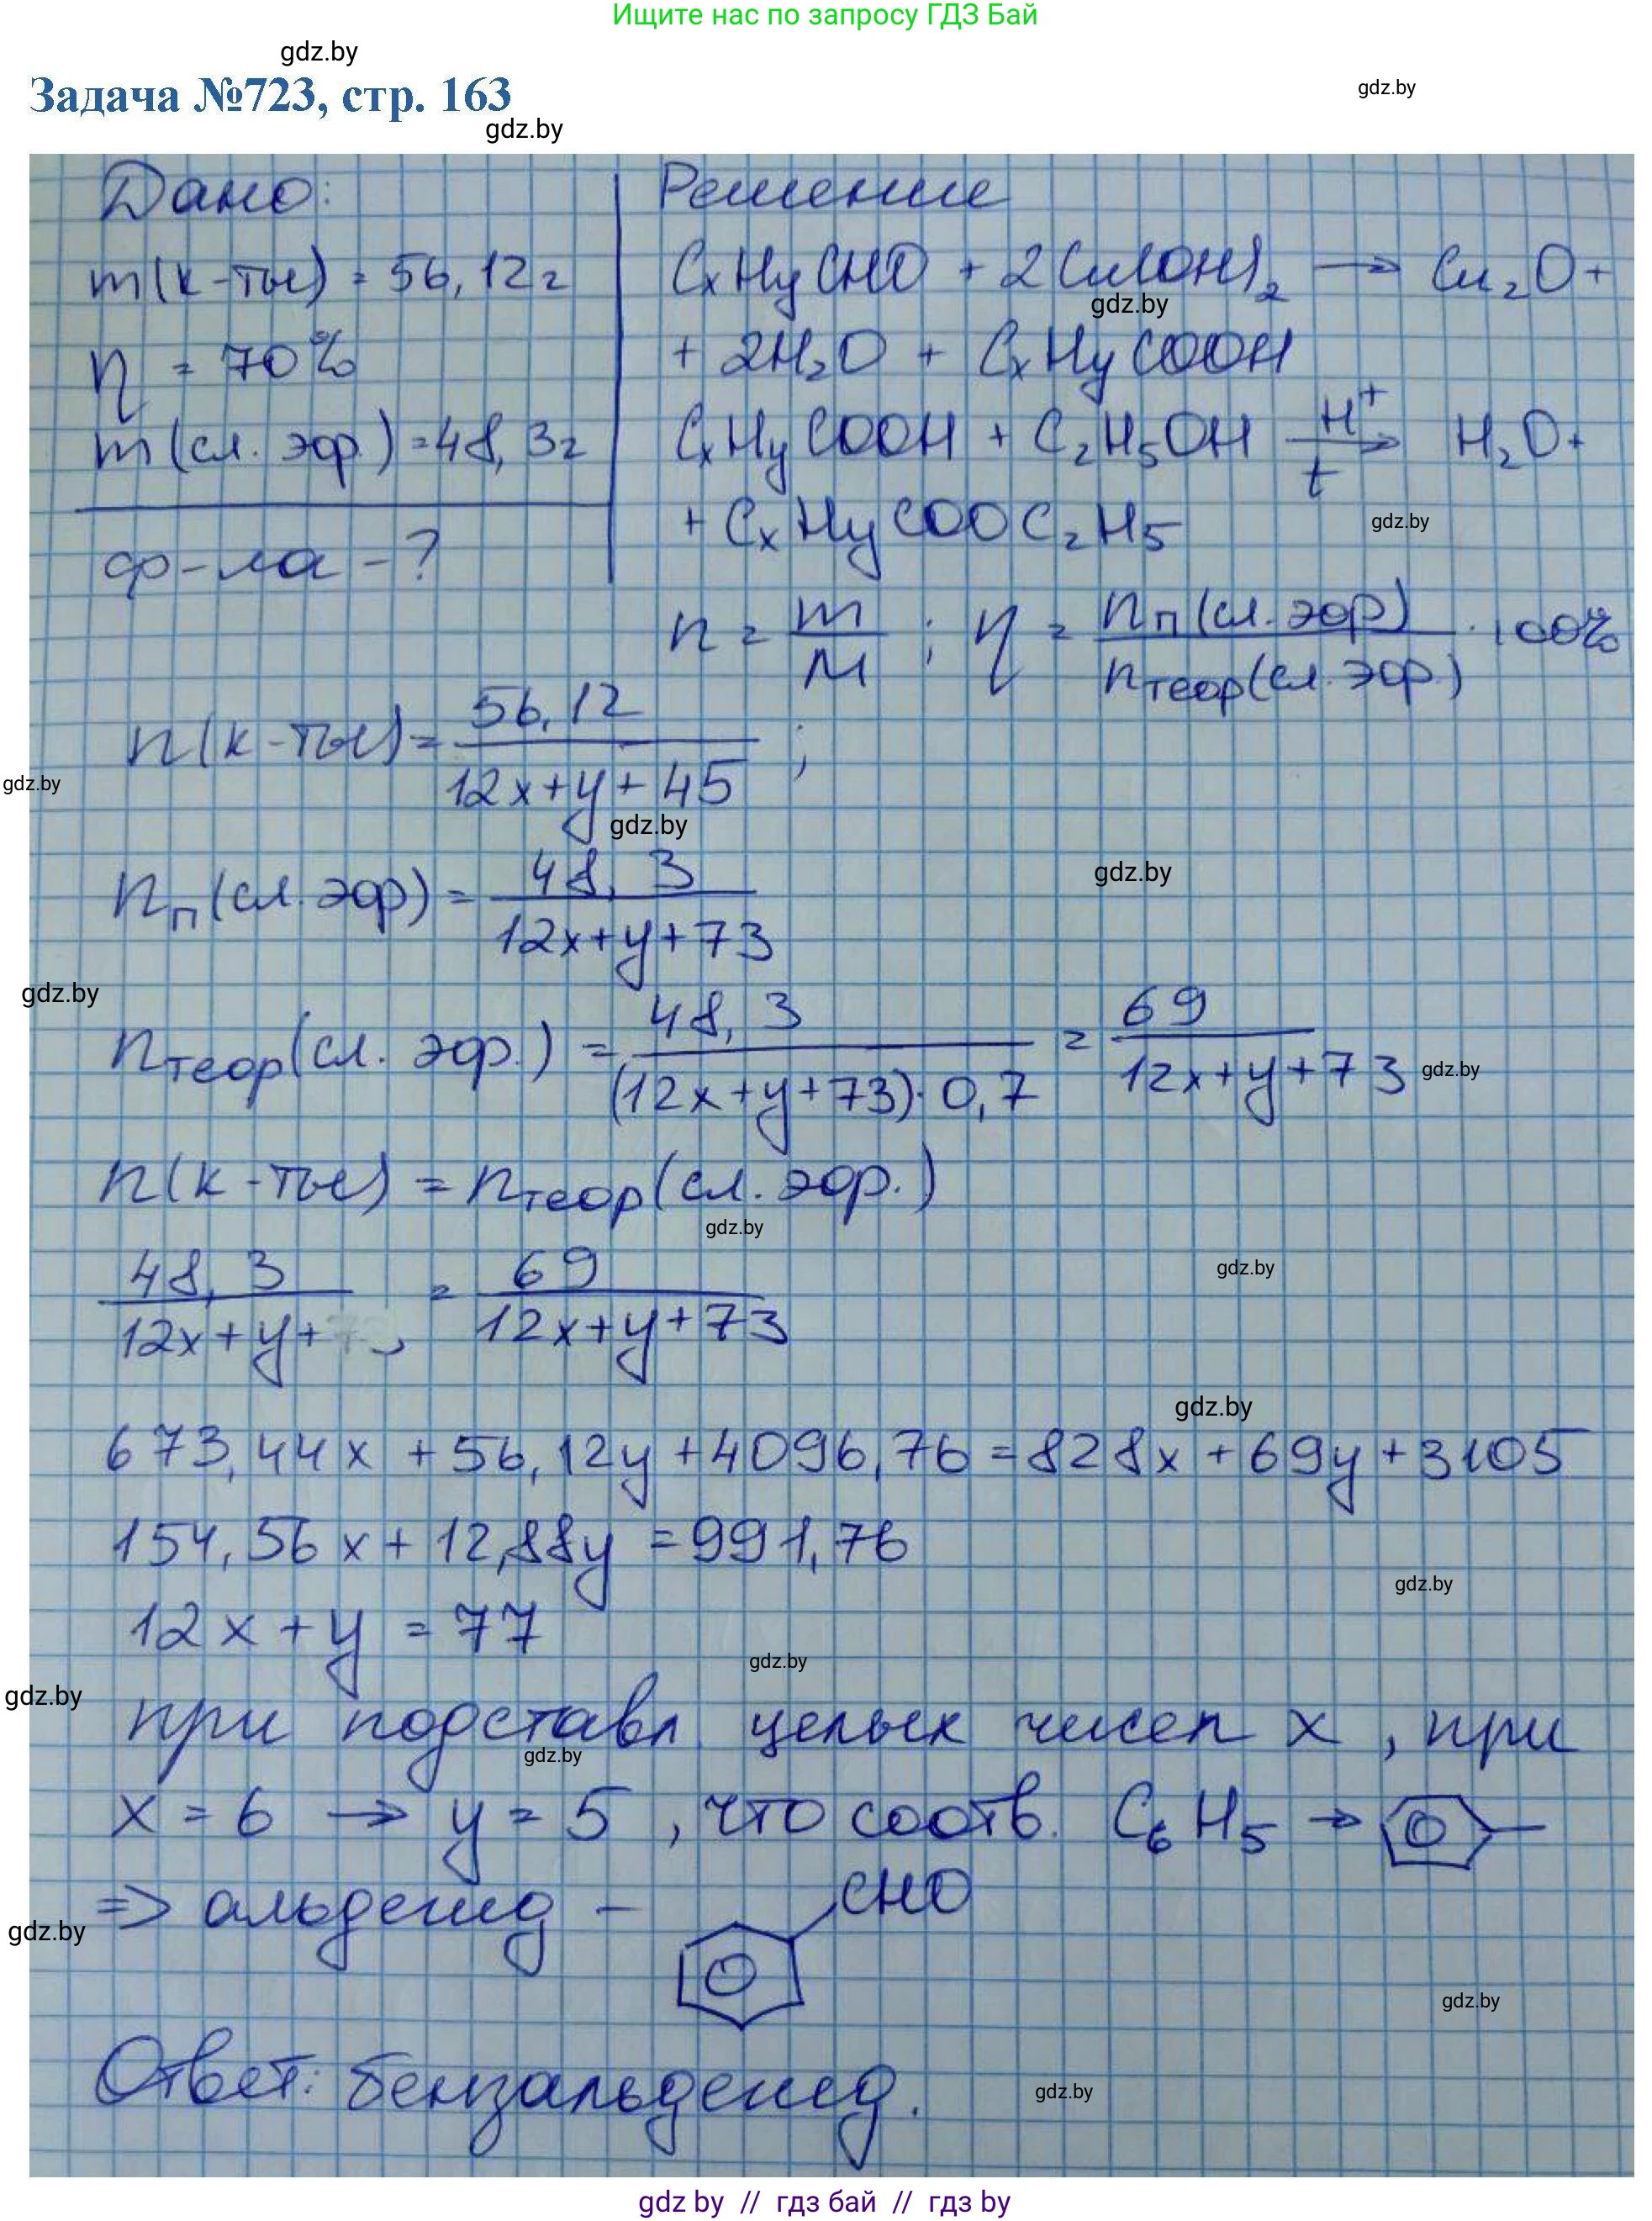 Ищите нас по запросу ГДЗ Бай
gdz.by
Задача №723, стр. 163
gdz.by
gdz.by
Дано:
m(к-ты) = 56,12г
η = 70%
m(сл. эфр.) = 48,3г
ф-ла - ?
Решение
CxHyCHO + 2Cu(OH)2 → Cu2O +
gdz.by
+ 2H2O + CxHyCOOH
CxHyCOOH + C2H5OH H+ t → H2O +
+ CxHyCOOC2H5
gdz.by
n = m/M ; η = nп(сл. эфр)/nтеор(сл. эфр.) · 100%
n(к-ты) = 56,12/(12x+y+45) ;
gdz.by
gdz.by
nп(сл. эфр) = 48,3/(12x+y+73)
gdz.by
gdz.by
nтеор(сл. эфр.) = 48,3/((12x+y+73)·0,7) = 69/(12x+y+73)
gdz.by
n(к-ты) = nтеор(сл. эфр.)
gdz.by
gdz.by
48,3/(12x+y+ = 69/(12x+y+73)
gdz.by
673,44x + 56,12y + 4096,76 = 828x + 69y + 3105
154,56x + 12,88y = 991,76
gdz.by
12x + y = 77
gdz.by
gdz.by
при подставл целых чисел x, при
gdz.by
x = 6 → y = 5, что соотв. C6H5 →
⇒ альдегид – CHO
gdz.by
gdz.by
Ответ: бензальдегид.
gdz.by
gdz by // гдз бай // гдз by